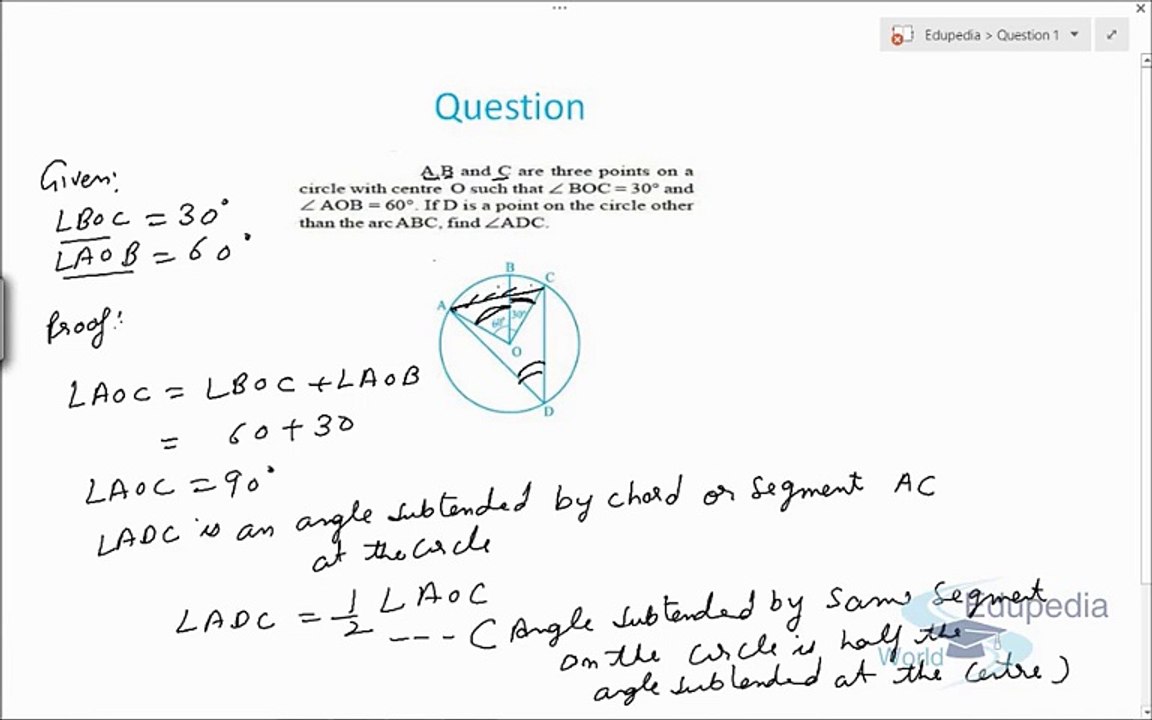 Edupedia > Question 1
Question
Given:
∠BOC = 30°
∠AOB = 60°
A,B and C are three points on a
circle with centre O such that ∠ BOC = 30° and
∠ AOB = 60°. If D is a point on the circle other
than the arc ABC, find ∠ADC.
B
C
A
60°
30°
O
D
Proof:
∠AOC = ∠BOC + ∠AOB
= 60 + 30
∠AOC = 90°
∠ADC is an angle subtended by chord or segment AC
at the circle
∠ADC = 1/2 ∠AOC
--- ( Angle subtended by same segment
on the circle is half the
angle subtended at the centre )
Edupedia
World